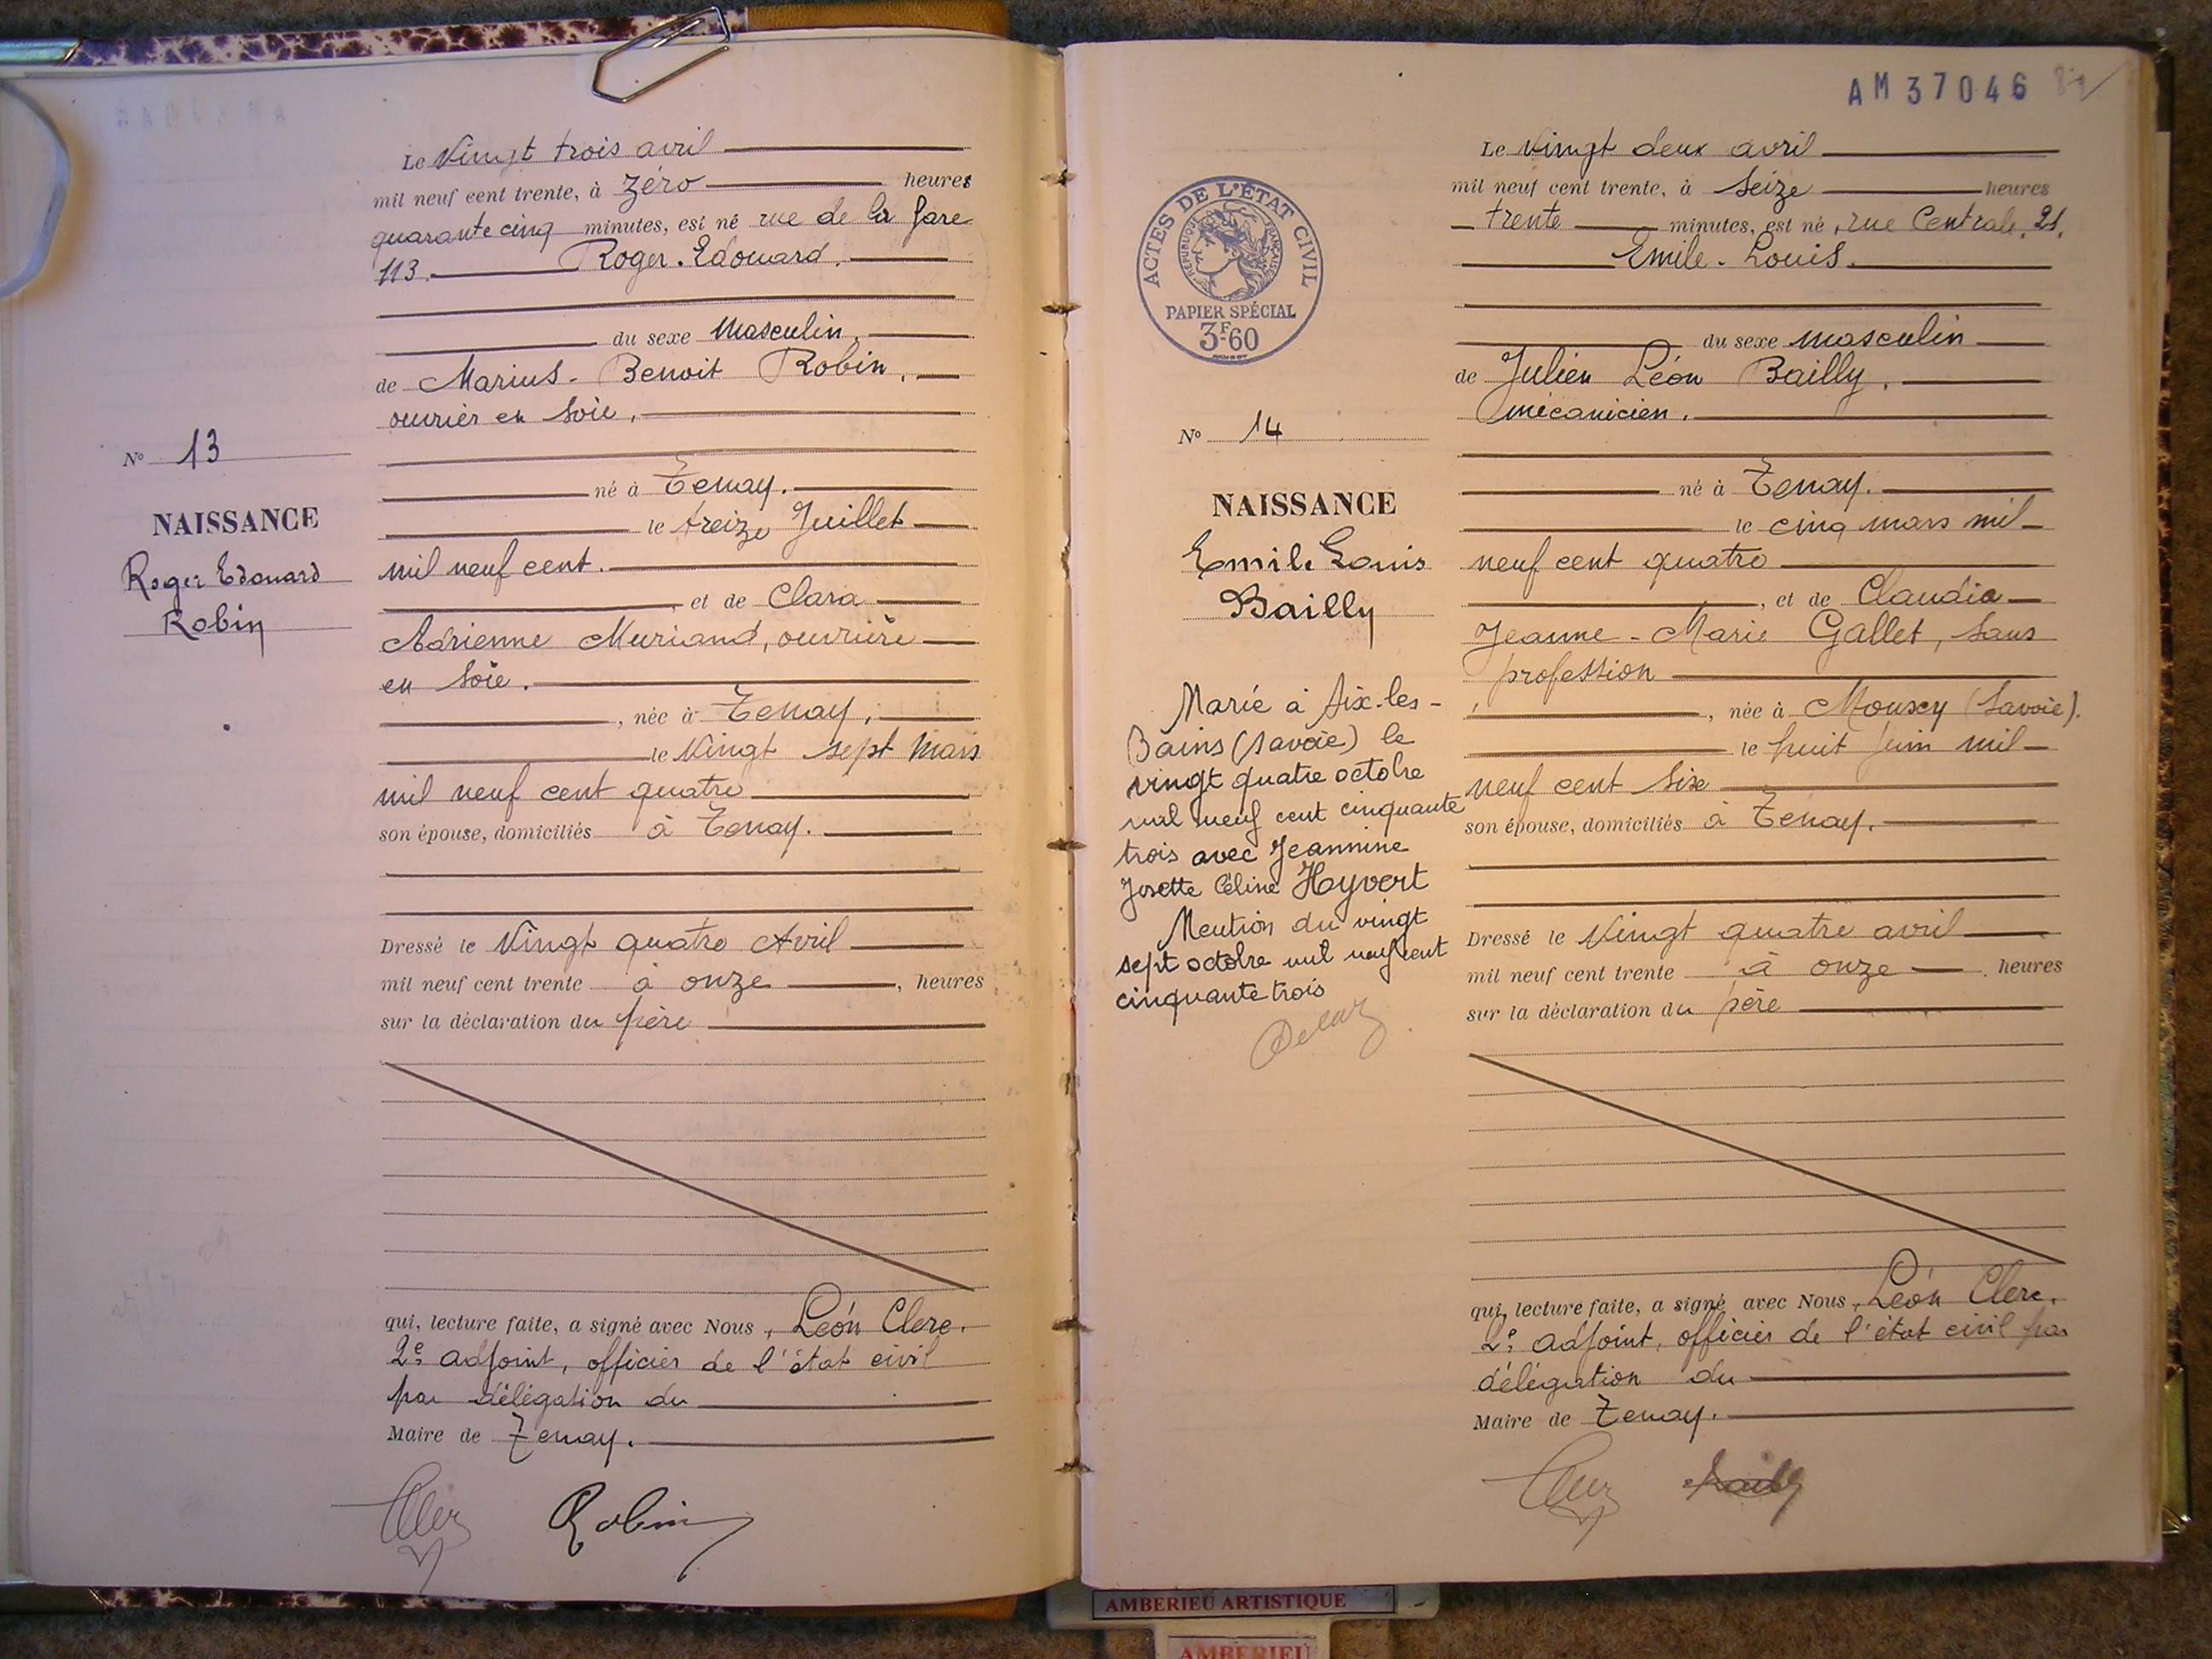 Le Vingt trois avril
mil neuf cent trente, à zéro heures
quarante cinq minutes, est né rue de la Gare
113. Roger. Edouard.
du sexe masculin,
de Marius - Benoit Robin,
ouvrier en soie,
N° 13
né à Tenay.
NAISSANCE
le treize Juillet
Roger Edouard
mil neuf cent.
Robin
et de Clara
Adrienne Muriand, ouvrière
en soie.
, née à Tenay,
le Vingt sept Mars
mil neuf cent quatre
son épouse, domiciliés à Tenay.
Dressé le Vingt quatre Avril
mil neuf cent trente à onze , heures
sur la déclaration du père
qui, lecture faite, a signé avec Nous, Léon Clerc.
2e adjoint, officier de l'état civil
par délégation du
Maire de Tenay.
Clerc Robin
AM 37046
ACTES DE L'ÉTAT CIVIL
RÉPUBLIQUE FRANÇAISE
PAPIER SPÉCIAL
3F60
Le Vingt deux avril
mil neuf cent trente, à seize heures
trente minutes, est né, rue Centrale, 21,
Emile - Louis.
du sexe masculin
de Julien Léon Bailly,
mécanicien.
N° 14
né à Tenay.
NAISSANCE
le cinq mars mil
Emile Louis
neuf cent quatre
Bailly
, et de Claudia
Jeanne - Marie Gallet, sans
profession
, née à Mouxy (Savoie).
le huit juin mil
neuf cent six
son épouse, domiciliés à Tenay.
Marié à Aix-les-
Bains (Savoie) le
vingt quatre octobre
mil neuf cent cinquante
trois avec Jeannine
Josette Céline Hoyvert
Mention du vingt
sept octobre mil neuf cent
cinquante trois
Dressé le Vingt quatre avril
mil neuf cent trente à onze , heures
sur la déclaration du père
qui, lecture faite, a signé avec Nous, Léon Clerc.
2e adjoint, officier de l'état civil par
délégation du
Maire de Tenay.
Clerc Bailly
AMBERIEU ARTISTIQUE
AMBERIEU